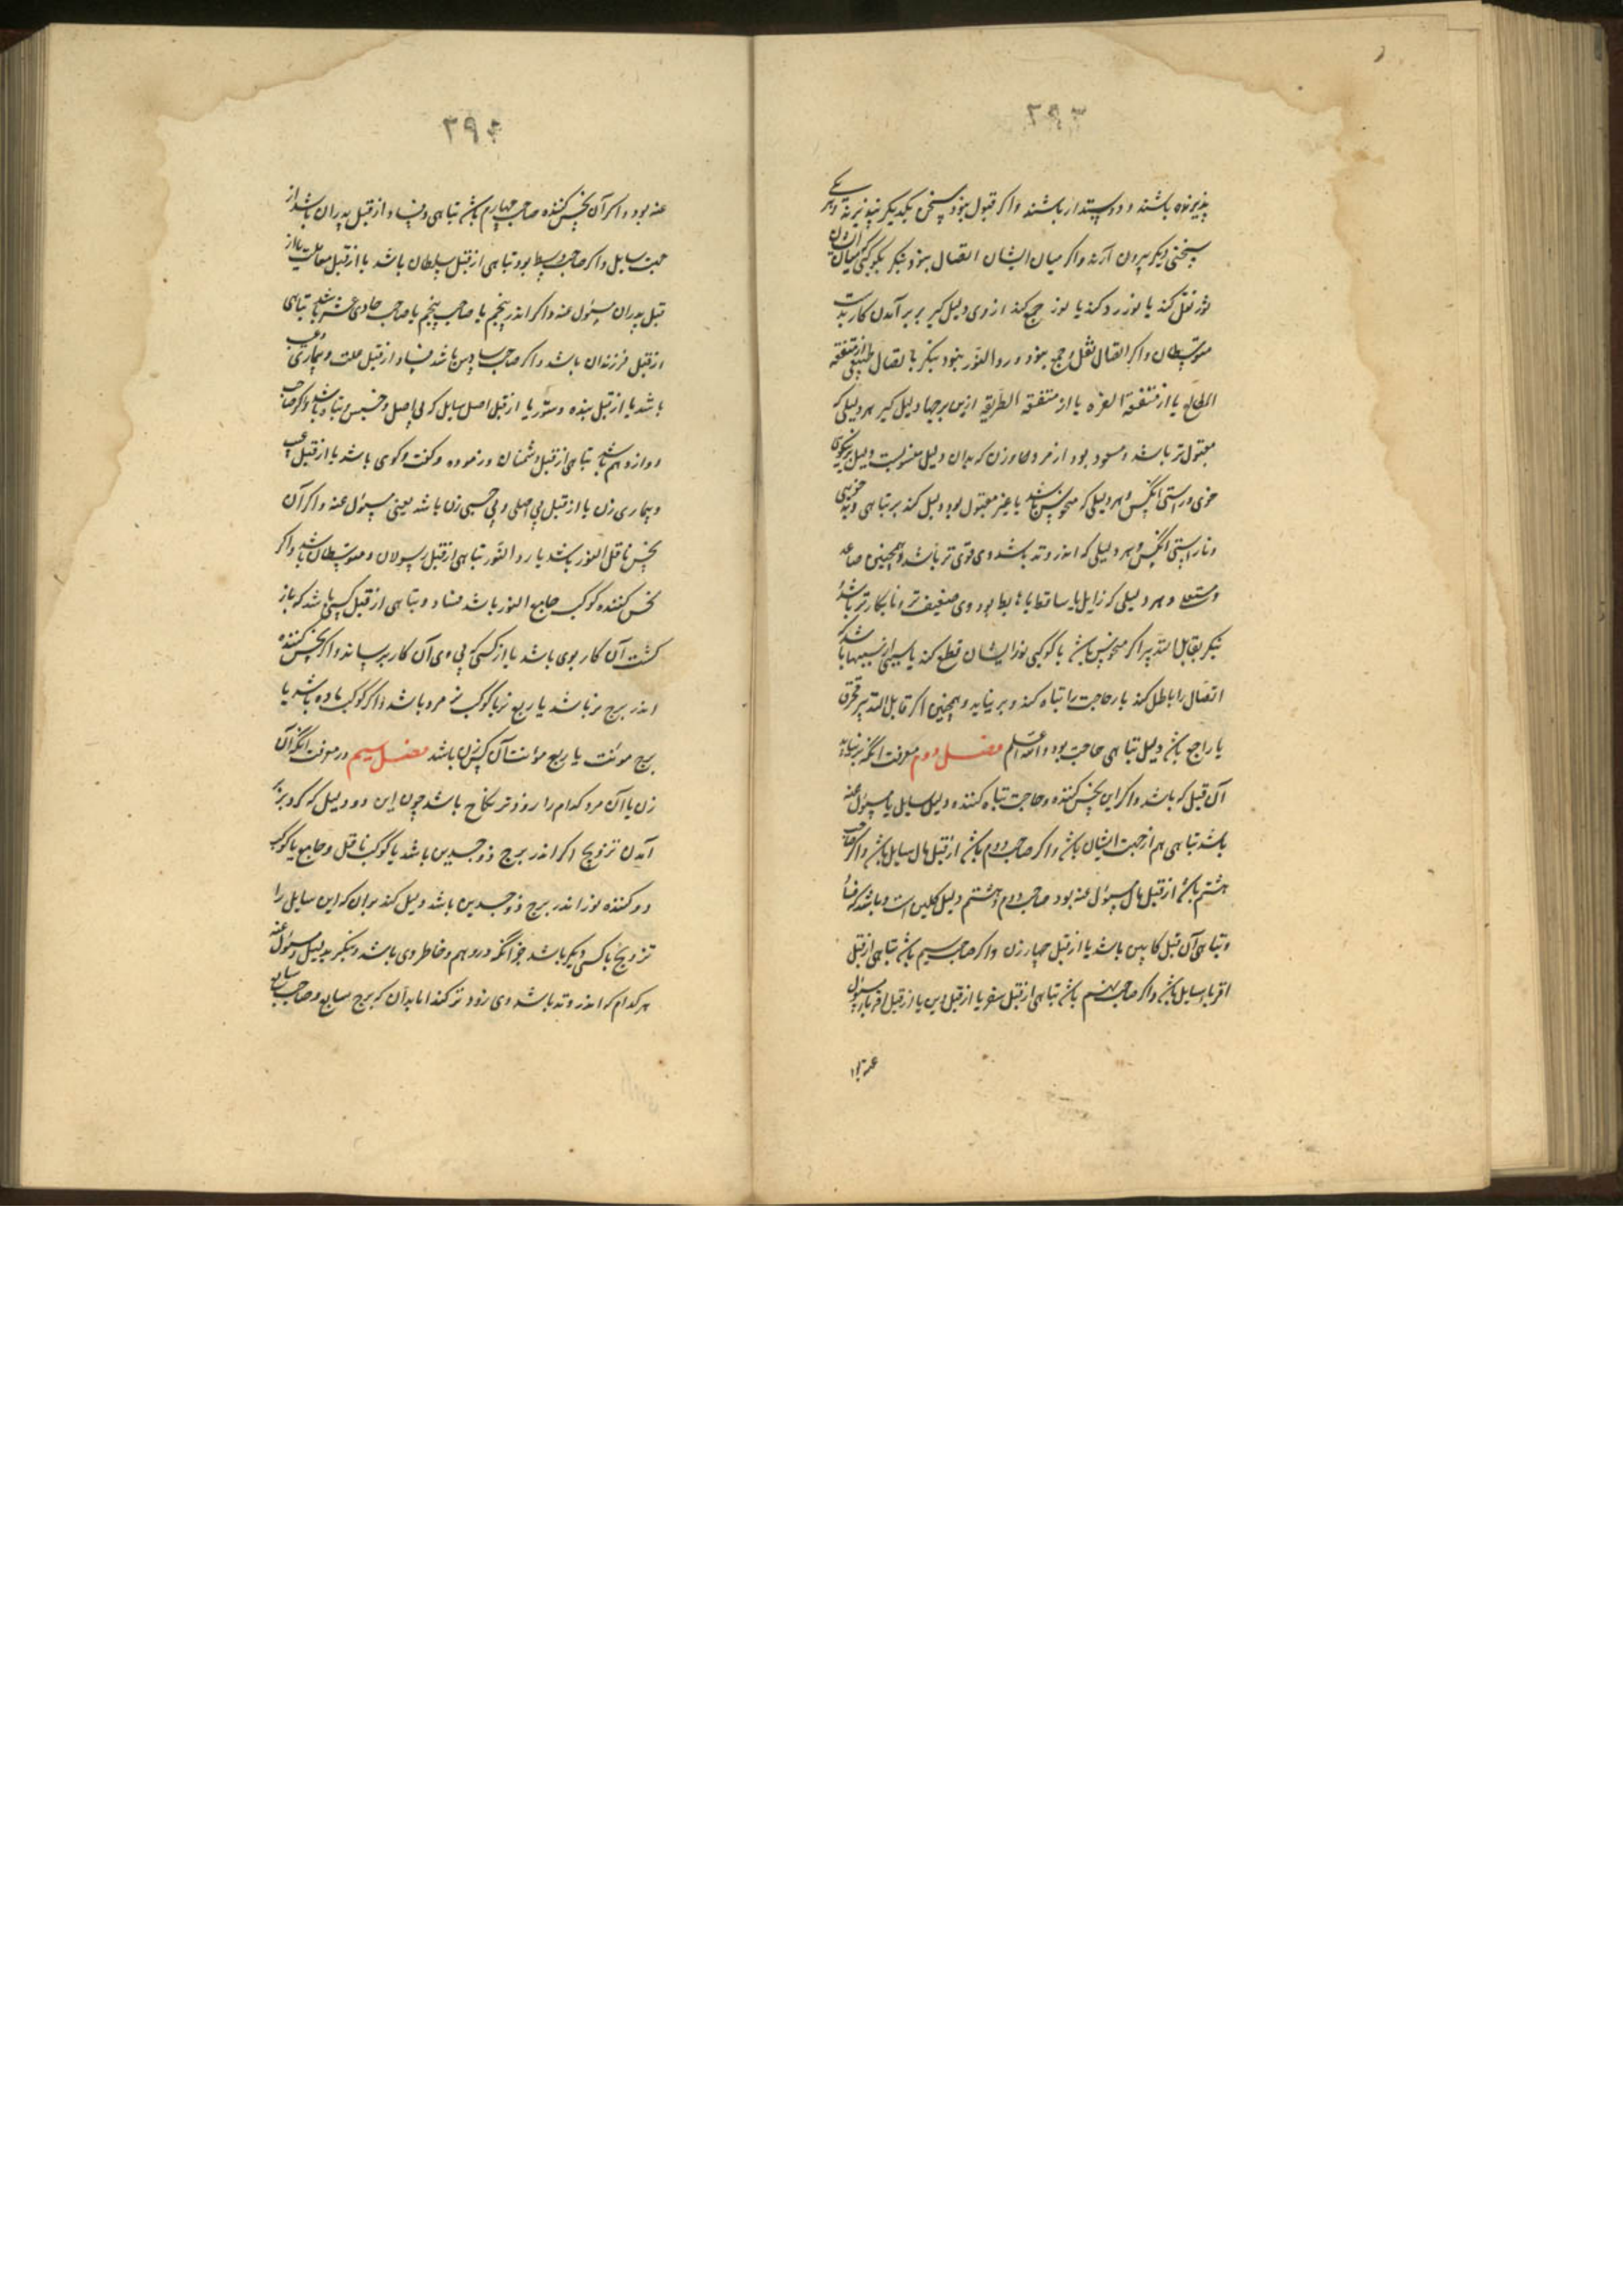 ۳۹۳
پذیرنده باشند و دوستدار باشند و اگر قبول نبود سخن یکدیگر نپذیرند و هر یکی
بسختی دیگر بیرون آرند و اگر میان ایشان اتصال نبود بنگر بکوکبی کی میان ایشان
نور نقل کند یا نور رد کند یا نور جمع کند از وی دلیل گیر بر برآمدن کار بدست
متوسطان و اگر اتصال نقل و جمع نبود و رد النور نبود بنگر باتصال طبیعی از متفقة
المطالع یا از متفقة القوة یا از متفقة الطریقه ازین برجها دلیل گیر هر دلیلی که
مقبول‌تر باشد و مسعود بود از مرد و از زن که بدان دلیل منسوبست دلیل بر نیکوی
خوی و راستی آنکس و هر دلیلی که منحوس باشد یا غیر مقبول بود دلیل کند بر تباهی و بدخویی
و ناراستی آنکس و هر دلیلی که اندر وتد باشد وی قوی تر باشد و همچنین صاعد
و مستعلی و هر دلیلی که زایل یا ساقط یا هابط بود وی ضعیف تر و نابکارتر باشد و
بنگر بقابل التدبیر اگر منحوس باشد یا کوکبی نور ایشان قطع کند یا سببی از سببها باشد که
اتصال را باطل کند یا رحاجت را تباه کند و بر نیاید و همچنین اگر قابل التدبیر محترق
یا راجع باشد دلیل تباهی حاجت بود والله اعلم فصل دوم معرفت آنکه بر نیاید
آن قبل که باشد و اگر این نحس کننده و حاجت تباه کننده دلیل سایل یا مسئول عنه
باشد تباهی هم از جهت ایشان باشد و اگر صاحب دوم باشد از قبل مال سایل باشد و اگر صاحب
هشتم باشد از قبل مال مسئول عنه بود صاحب دوم و هشتم دلیل کابین است و باشد که فساد
و تباهی آن قبل کابین باشد یا از قبل جهاز زن و اگر صاحب سیم باشد تباهی از قبل
اقربا سایل باشد و اگر صاحب نهم باشد تباهی از قبل سفر یا از قبل دین یا از قبل اقربا مسئول
عنه بود
۳۹۴
عنه بود و اگر آن نحس کننده صاحب چهارم باشد تباهی و فساد از قبل پدران باشد از
جهت سایل و اگر صاحب وسط بود تباهی از قبل سلطان باشد یا از قبل معاملت یا از
قبل پدران مسئول عنه و اگر اندر پنجم یا صاحب پنجم یا صاحب حادی عشر باشد تباهی
از قبل فرزندان باشد و اگر صاحب سادس باشد فساد از قبل علت و بیماری و عیب
باشد یا از قبل بنده و ستور یا از قبل اصل سایل که بی اصل و خسیس و تباه باشد و اگر صاحب
دوازدهم باشد تباهی از قبل دشمنان و گفت و گوی باشد یا از قبل عیب
و بیماری زن یا از قبل بی اصلی و بی حسبی زن باشد یعنی مسئول عنه و اگر آن
نحس ناقل النور باشد یا رد النور تباهی از قبل رسولان و متوسطان باشد و اگر
نحس کننده کوکب جامع النور باشد فساد و تباهی از قبل کسی باشد که باز
گشت آن کار بوی باشد یا از کسی که بی وی آن کار برساند و اگر نحس کننده
اندر برج نر باشد یا ربع نر یا کوکب نر مرد باشد و اگر کوکب ماده باشد یا
برج مونث یا ربع مونث آن کس زن باشد فصل سیم در معرفت آنکه آن
زن یا آن مرد کدام را زودتر نکاح باشد چون این دو دلیل که کرد بر
آمدن تزویج اگر اندر برج ذو جسدین باشد یا کوکب ناقل و جامع یا کوکب
رد کننده نور اندر برج ذو جسدین باشد دلیل کند بر آن که این سایل را
تزویج با کسی دیگر باشد جز آنکه در وهم و خاطر وی باشد و بنگر بدلیل مسئول عنه
هر کدام که اندر وتد باشد وی زودتر کند اما بدان که برج سابع و صاحب سابع